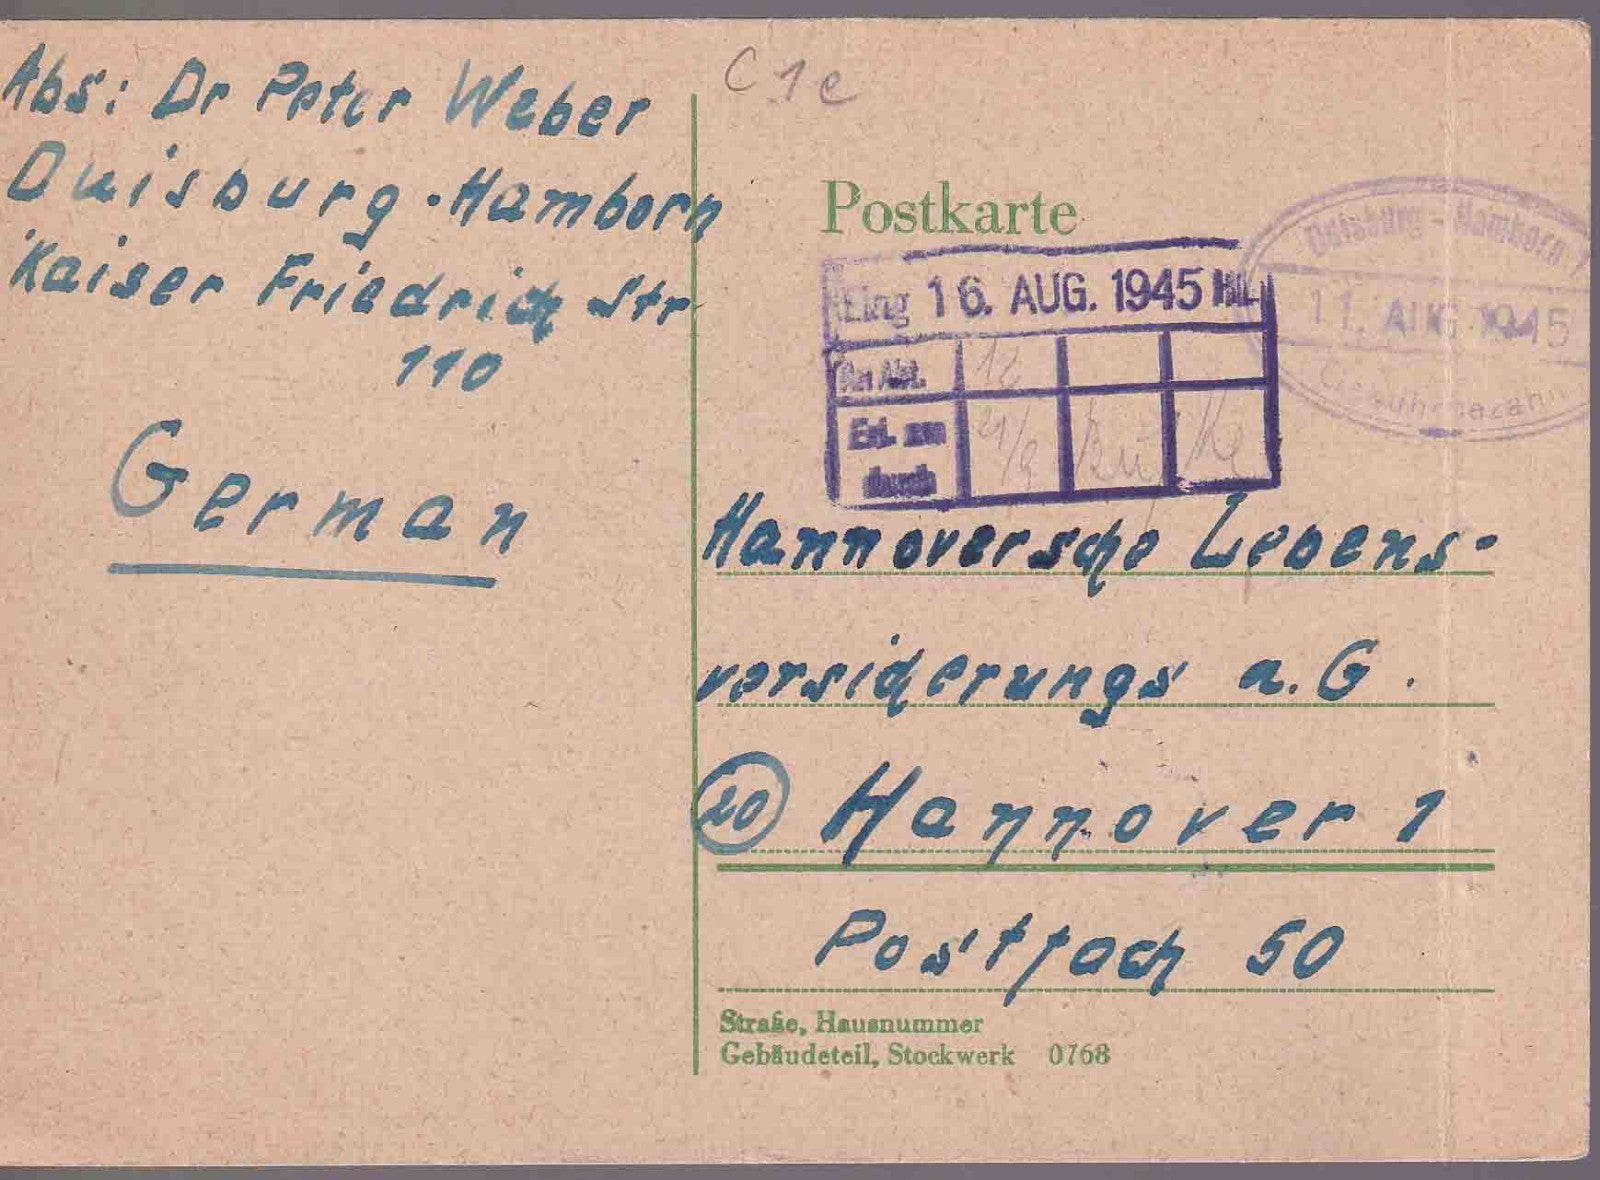 Abs: Dr Peter Weber
Duisburg-Hamborn
Kaiser Friedrich Str
110
German
C 1 e
Postkarte
Duisburg - Hamborn
11. AUG. 1945
Eing 16. AUG. 1945
An Abt.
Erl. am 21/9
durch
Hannoversche Lebens-
versicherungs a.G.
20 Hannover 1
Postfach 50
Straße, Hausnummer
Gebäudeteil, Stockwerk 0768